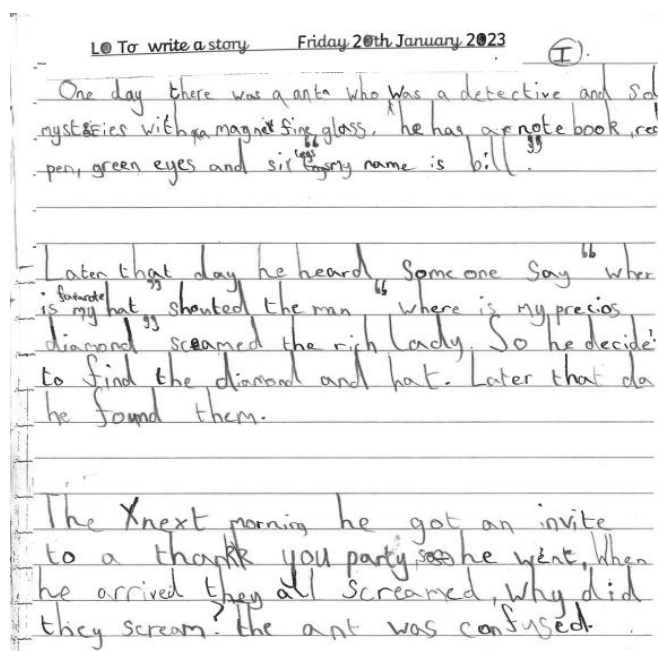 LO To write a story Friday 20th January 2023
I.
One day there was a anta who was a detective and so
mysteries with a magnet fine glass. he has a note book, red
pen, green eyes and six legs "my name is bill".
Later that day he heard Some one Say "wher
is my favarote hat" shouted the man "where is my precios
diamond" screamed the rich Lady. So he decide
to find the diamond and hat. Later that da
he found them.
The next morning he got an invite
to a thank you party, he went, When
he arrived they all Screamed, Why did
they scream? the ant was confused.